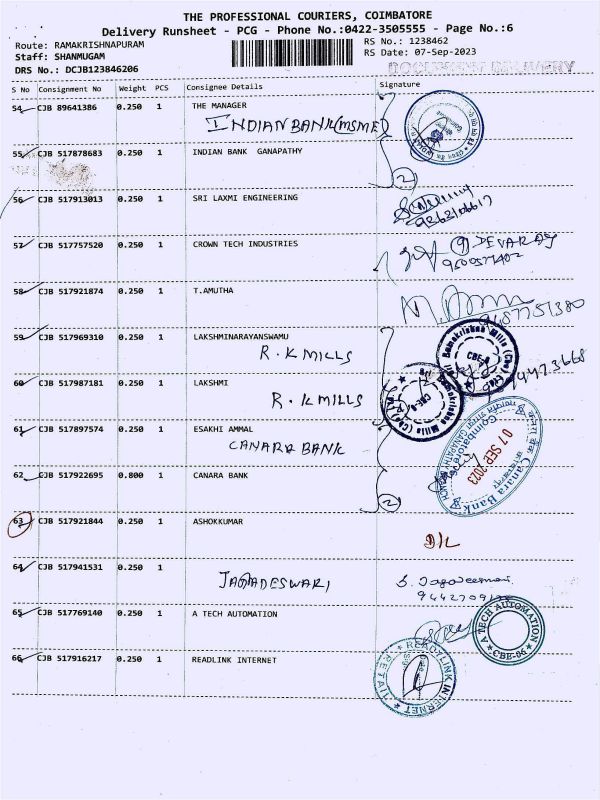 THE PROFESSIONAL COURIERS, COIMBATORE
Delivery Runsheet - PCG - Phone No.:0422-3505555 - Page No.:6
Route: RAMAKRISHNAPURAM
RS No.: 1238462
Staff: SHANMUGAM
RS Date: 07-Sep-2023
DRS No.: DCJB123846206
DOCUMENT DELIVERY
S No Consignment No Weight PCS Consignee Details Signature
54 CJB 89641386 0.250 1 THE MANAGER
INDIAN BANK (MSME)
55 CJB 517878683 0.250 1 INDIAN BANK GANAPATHY
2
56 CJB 517913013 0.250 1 SRI LAXMI ENGINEERING
57 CJB 517757520 0.250 1 CROWN TECH INDUSTRIES
58 CJB 517921874 0.250 1 T.AMUTHA
59 CJB 517969310 0.250 1 LAKSHMINARAYANSWAMU
R.K MILLS
Ramakrishna Mills
CBE-6
60 CJB 517987181 0.250 1 LAKSHMI
R.K MILLS
Ramakrishna Mills
CBE-6
61 CJB 517897574 0.250 1 ESAKHI AMMAL
CANARA BANK
Canara Bank
07 SEP 2023
Coimbatore
62 CJB 517922695 0.800 1 CANARA BANK
2
63 CJB 517921844 0.250 1 ASHOKKUMAR
D/L
64 CJB 517941531 0.250 1
JAGADESWARI
65 CJB 517769140 0.250 1 A TECH AUTOMATION
A TECH AUTOMATION
CBE-06
66 CJB 517916217 0.250 1 READLINK INTERNET
READYLINK INTERNET
RETAIL